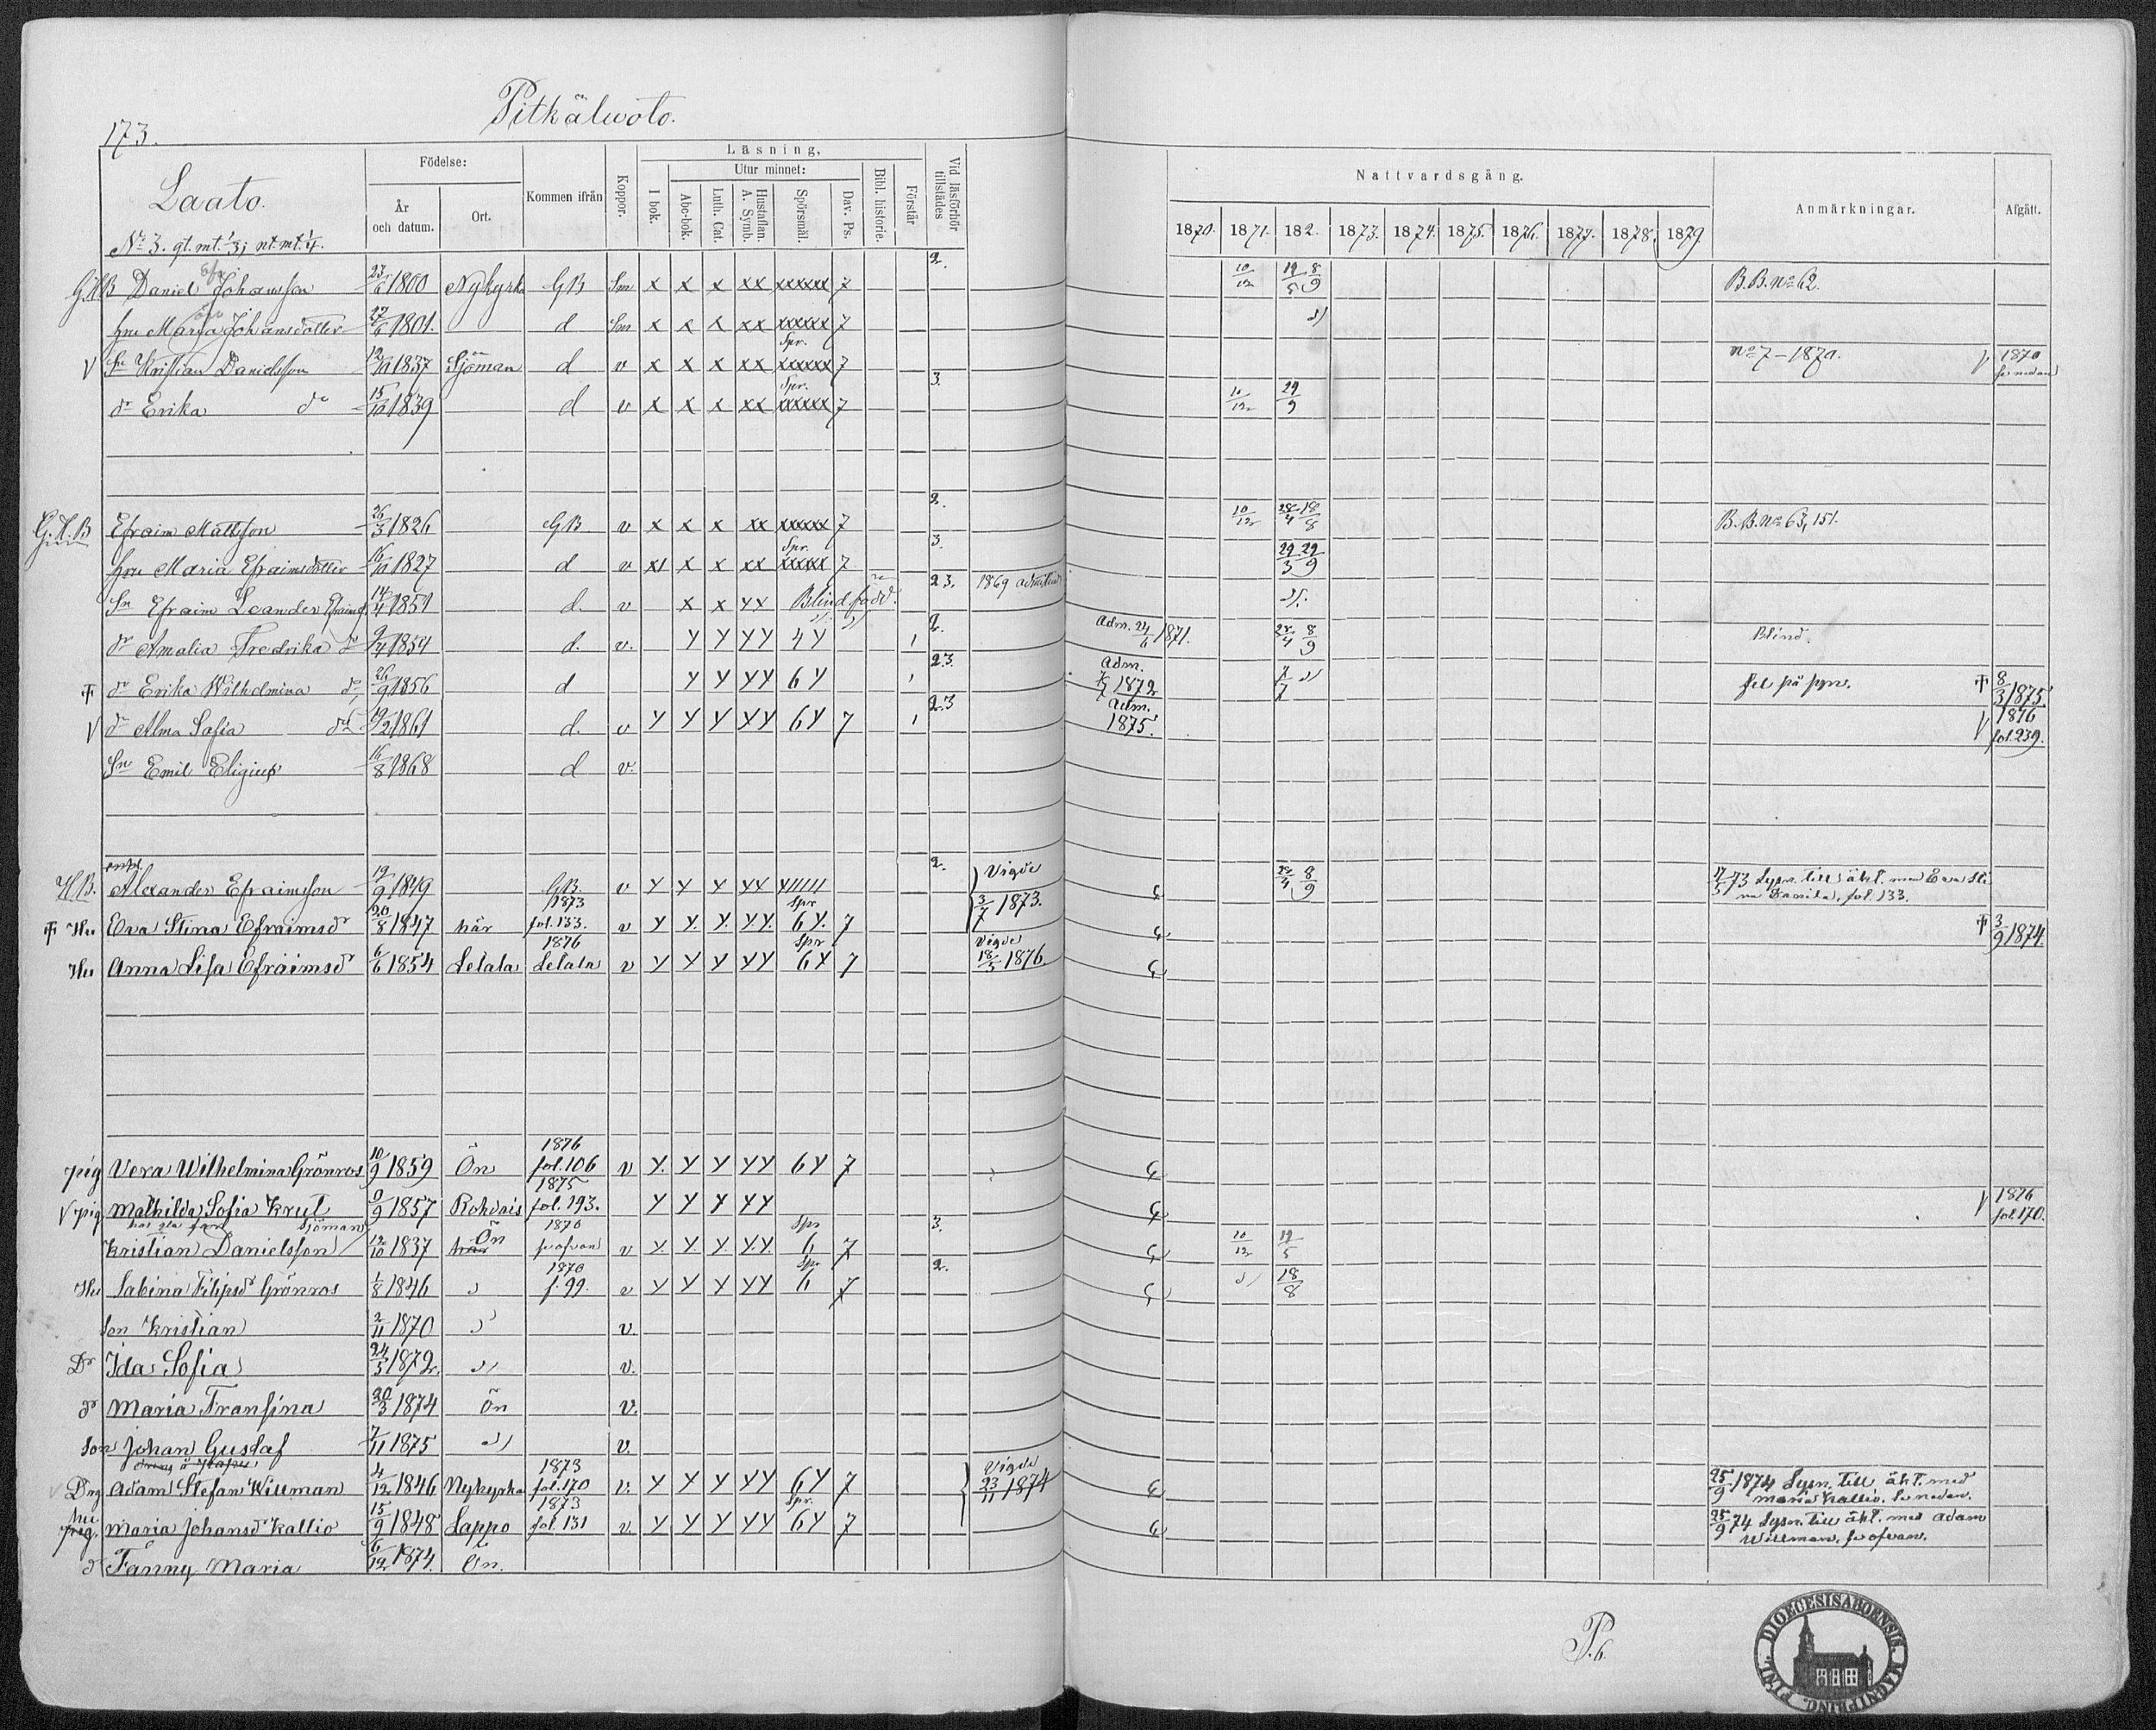 173.
Pitkälwoto.
Laato.
No 3. gt. mt. 1/3; nt. mt. 1/4.
Födelse:
År och datum.
Ort.
Kommen ifrån
Koppor.
Läsning.
I bok.
Utur minnet:
Abc-bok.
Luth. Cat.
Hustaflan. A. Symb.
Spörsmål.
Dav. Ps.
Bibl. historie.
Förstår
Vid läsförhör tillstädes
Nattvardsgång.
1870. 1871. 182. 1873. 1874. 1875. 1876. 1877. 1878. 1879
Anmärkningar.
Afgått.
Daniel Johansson 1800 Nykyrka GB x x x xx xxxxxx 7 2. 10/12 19/5 8/9 B.B. No 62.
hu Maria Johansdotter 27/6 1801. d x x x xx xxxxxx 7
V Sn Kristian Danielsson 12/10 1837 Sjöman d v x x x xx Spr. xxxxxx 7 No 7-1870. V 1870 se nedan
dr Erika do 15/10 1839 d v x x x xx Spr. xxxxxx 7 3. 10/12 29/9
Efraim Mattsson 26/3 1826 GB v x x x xx xxxxxx 7 2. 10/12 28/4 18/8 B.B. No 63, 151.
hu Maria Efraimsdotter 16/10 1827 d v x x x xx Spr. xxxxxx 7 3. 29/3 29/9
Sn Efraim Leander Efraims. 14/4 1851 d. v x x xx Blind född. 23. 1869
dr Amalia Fredrika do 9/4 1854 d. v. Y Y YY 4Y 1 2. Adm. 24/6 1871. 28/4 8/9 Blind.
dr Erika Wilhelmina do 26/9 1856 d Y Y YY 6Y 1 23. Adm. 7/7 1872 7/7 fel på syn. 8/3 1875.
V dr Alma Sofia do 19/2 1861 d. v Y Y Y YY 6Y 7 1 2.3 Adm. 1875. V 1876 fol. 239.
Sn Emil Eligius 16/8 1868 d v.
H.B. Alexander Efraimsson 19/9 1849 GB v Y Y Y YY 2. Vigde 3/7 1873. 28/4 8/9 17/5 73 Lysn. till äkt. med Eva Stina Danila, fol. 133.
Hu Eva Stina Efraimsdr 20/8 1847 här 1873 fol. 133. v Y Y. Y. Y.Y. Spr 6Y. 7 3/9 1874.
Hu Anna Lisa Efraimsd 6/6 1854 Letala 1876 Letala v Y Y Y YY Spr 6Y 7 Vigde 18/5 1876.
pig Vera Wilhelmina Grönros 10/9 1859 Ön 1876 fol. 106 v Y. Y Y YY 6Y 7
V pig Mathilda Sofia Krut 9/9 1857 Rohdais 1875 fol. 193. Y Y Y YY V 1876 fol. 170.
sjöman
Kristian Danielsson 12/10 1837 Ön 1870 se ofvan v Y. Y. Y. Y.Y. Spr 6 7 3. 10/12 19/5
Hu Sabina Filipsdr Grönros 1/8 1846 1870 f. 99. v Y Y Y YY Spr 6 7 2. 18/8
Son Kristian 2/11 1870 v.
Dr Ida Sofia 24/5 1872. v.
dr Maria Fransina 20/3 1874 Ön v.
Son Johan Gustaf 7/11 1875 v.
Drng Adam Stefan Willman 4/12 1846 Nykyrka 1873 fol. 170 v. Y Y Y YY 6Y 7 Vigde 23/11 1874 25/9 1874 Lysn. till äkt. med Maria Kallio. Se nedan.
hu pig. Maria Johansd Kallio 15/9 1848 Lappo 1873 fol. 131 v. Y Y Y YY Spr. 6Y 7 25/9 74 Lysn. till äkt. med Adam Willman, se ofvan.
d Fanny Maria 6/12 1874. Ön.
P. 6.
DIOECESIS ABOENSIS